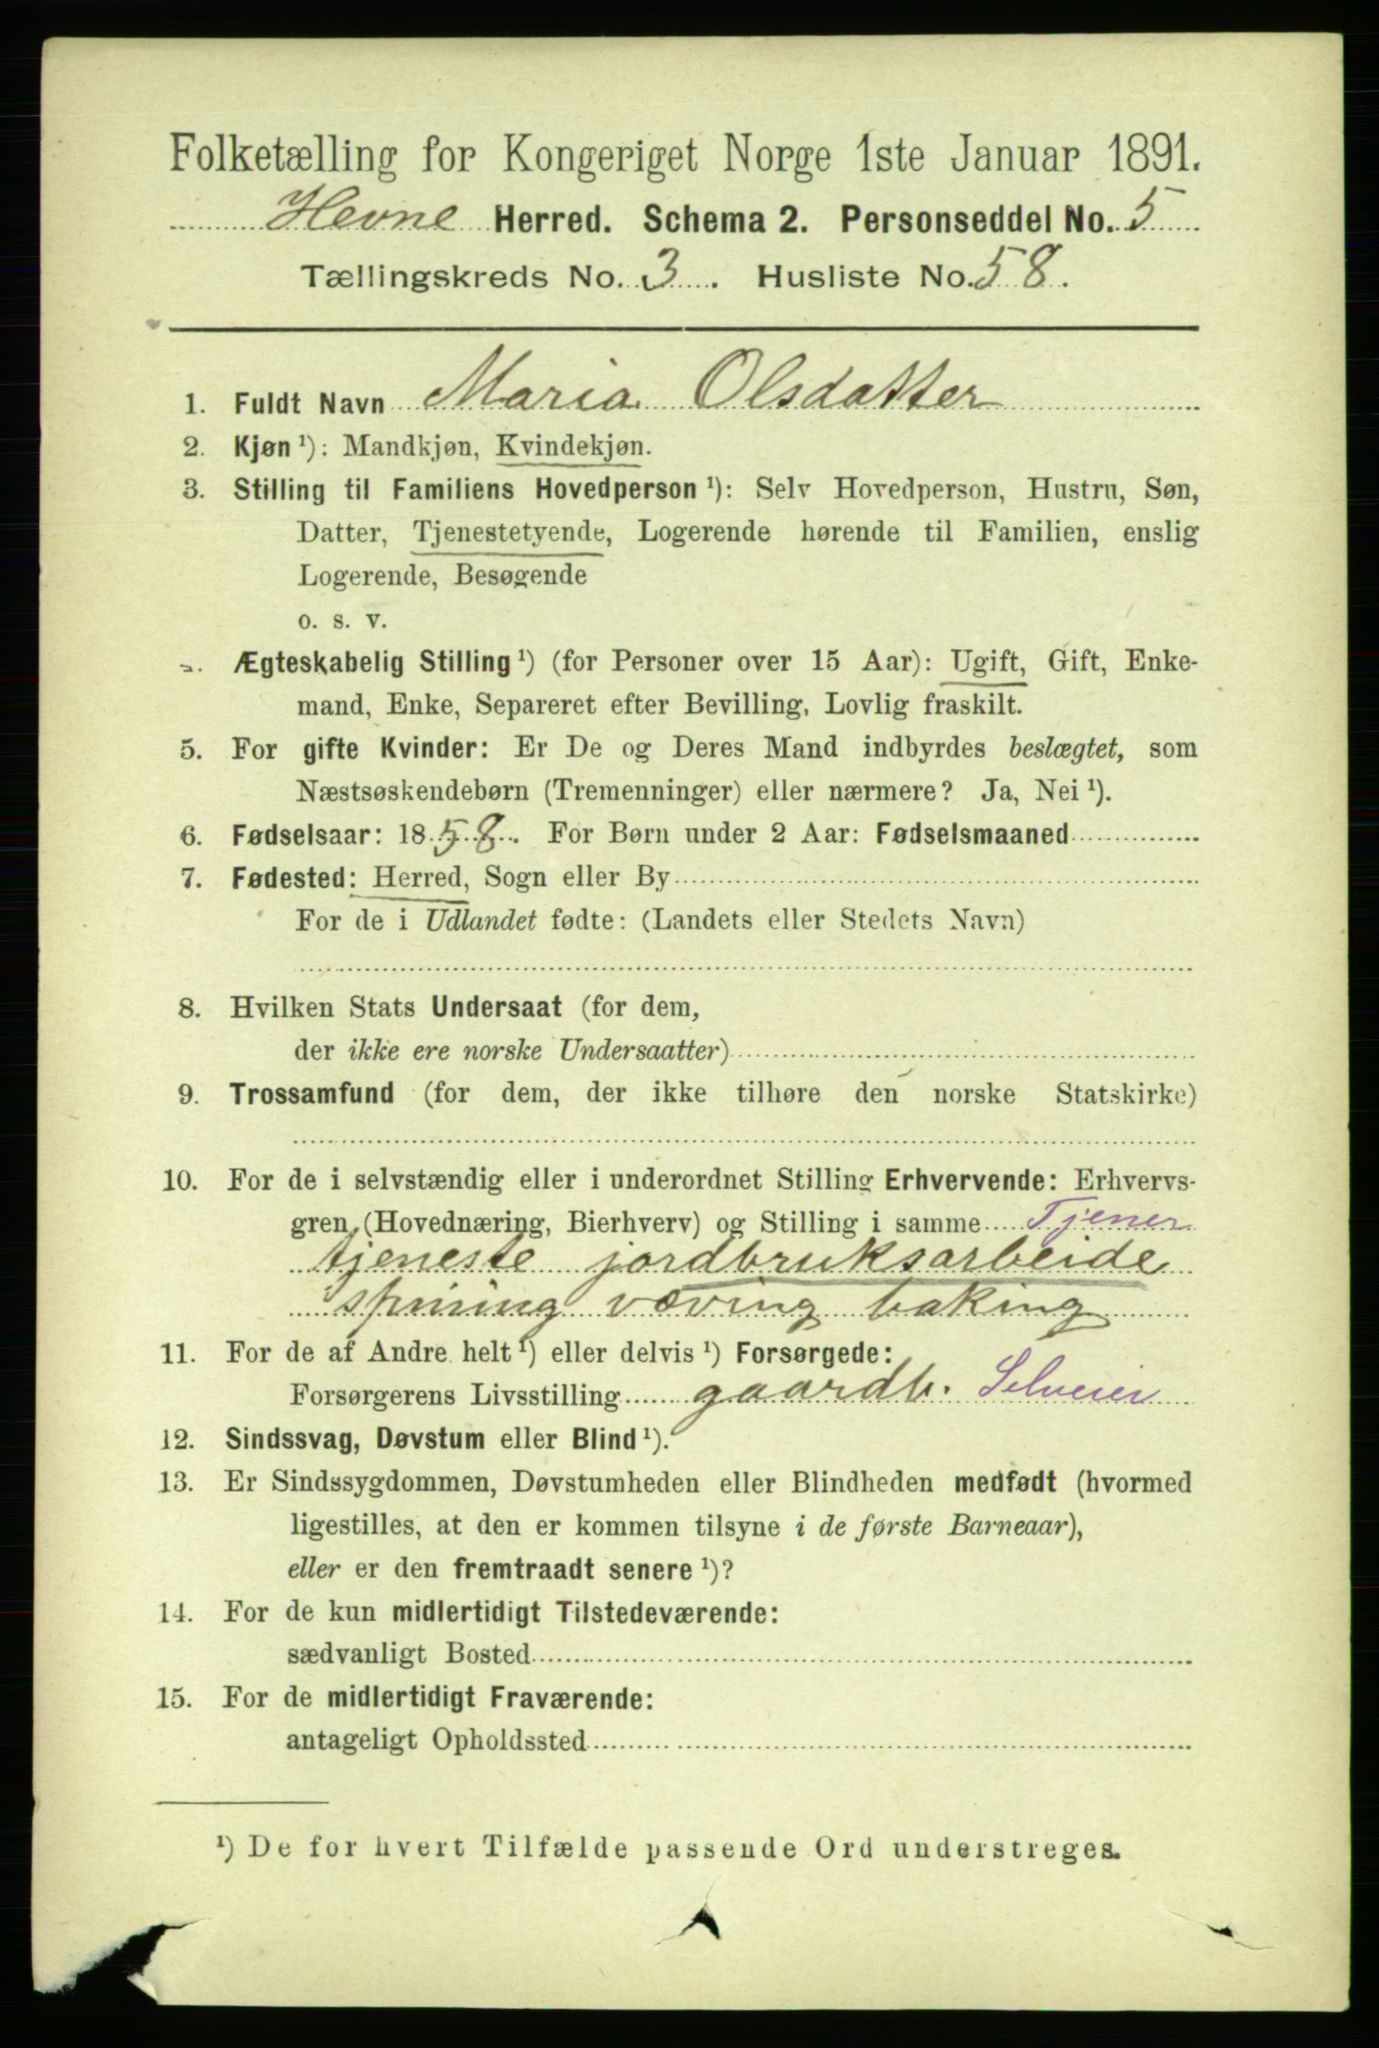 Folketælling for Kongeriget Norge 1ste Januar 1891.
Hevne Herred. Schema 2. Personseddel No. 5
Tællingskreds No. 3. Husliste No. 58.
1. Fuldt Navn Maria Olsdatter
2. Kjøn ¹): Mandkjøn, Kvindekjøn.
3. Stilling til Familiens Hovedperson ¹): Selv Hovedperson, Hustru, Søn,
Datter, Tjenestetyende, Logerende hørende til Familien, enslig
Logerende, Besøgende
o. s. v.
Ægteskabelig Stilling ¹) (for Personer over 15 Aar): Ugift, Gift, Enke-
mand, Enke, Separeret efter Bevilling, Lovlig fraskilt.
5. For gifte Kvinder: Er De og Deres Mand indbyrdes beslægtet, som
Næstsøskendebørn (Tremenninger) eller nærmere? Ja, Nei ¹).
6. Fødselsaar: 1858. For Børn under 2 Aar: Fødselsmaaned
7. Fødested: Herred, Sogn eller By
For de i Udlandet fødte: (Landets eller Stedets Navn)
8. Hvilken Stats Undersaat (for dem,
der ikke ere norske Undersaatter)
9. Trossamfund (for dem, der ikke tilhøre den norske Statskirke)
10. For de i selvstændig eller i underordnet Stilling Erhvervende: Erhvervs-
gren (Hovednæring, Bierhverv) og Stilling i samme Tjener
tjeneste jordbruksarbeide
spining væving baking
11. For de af Andre helt ¹) eller delvis ¹) Forsørgede:
Forsørgerens Livsstilling gaardb. Selveier
12. Sindssvag, Døvstum eller Blind ¹).
13. Er Sindssygdommen, Døvstumheden eller Blindheden medfødt (hvormed
ligestilles, at den er kommen tilsyne i de første Barneaar),
eller er den fremtraadt senere ¹)?
14. For de kun midlertidigt Tilstedeværende:
sædvanligt Bosted
15. For de midlertidigt Fraværende:
antageligt Opholdssted
¹) De for hvert Tilfælde passende Ord understreges.